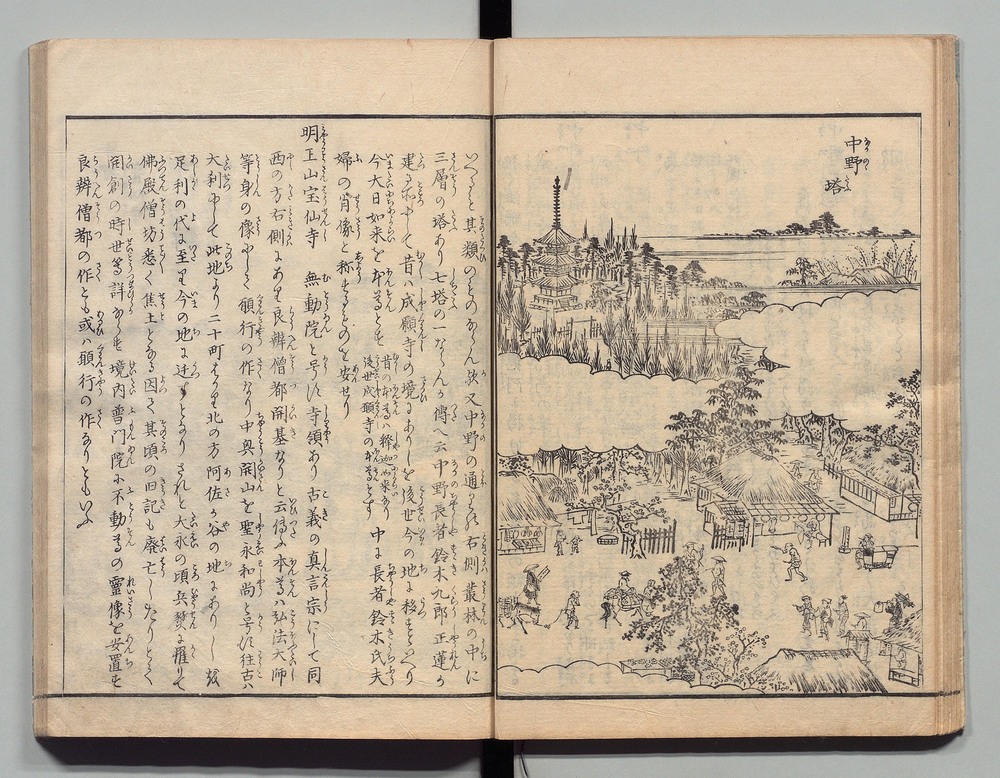 中野
塔
いへると其類のものならん歟又中野の通りの右側叢林の中に
三層の塔あり七塔の一ならんか傳へ云中野長者鈴木九郎正蓮か
建る所にて昔ハ成願寺の境にありしを後世今の地に移すといへり
今大日如来を本尊とす
昔の本尊ハ釋迦如来
後世成願寺の本尊とす
中に長者鈴木氏夫
婦の肖像と称するものを安せり
明王山宝仙寺
無動院と号す寺領あり古義の真言宗にして同
西の方右側にあり良辨僧都開基なりと云傳ふ本尊ハ弘法大師
等身の像にして願行の作なり中興開山を聖永和尚と号す往古ハ
大刹にして此地より二十町はかり北の方阿佐か谷の地にありしか
足利の代に至り今の地に迁すとなりされと大永の頃兵燹に罹りて
佛殿僧坊悉く焦土となる因て其頃の旧記も廃亡したりとて
開創の時世等詳ならす境内普門院に不動尊の靈像を安置す
良辨僧都の作とも或ハ願行の作なりともいふ